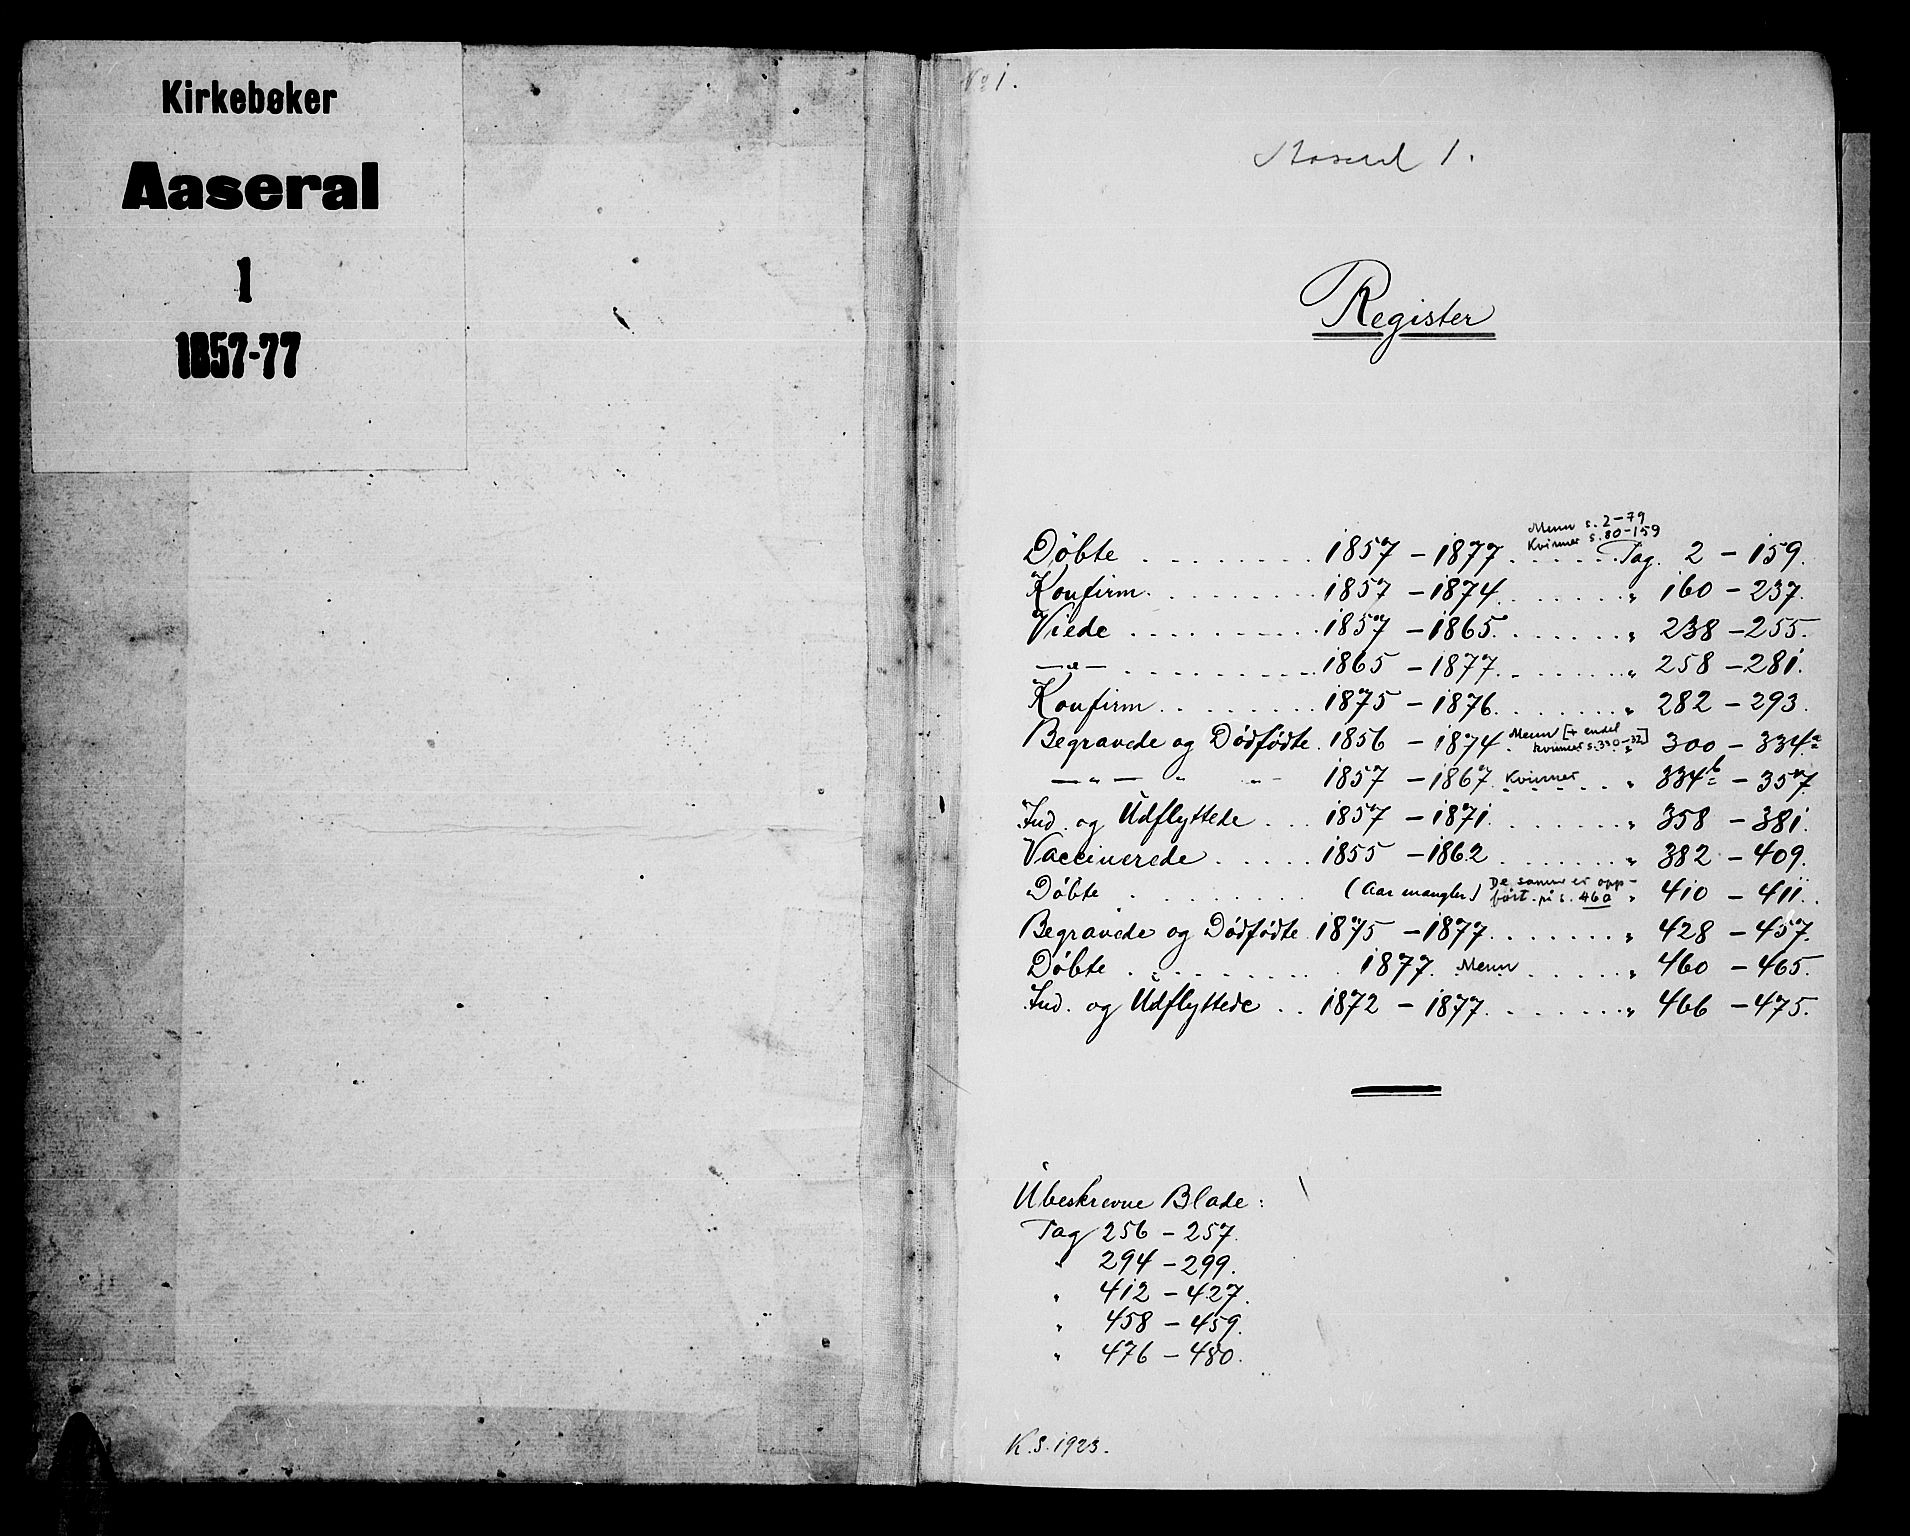 Kirkebøker
Aaseral
1
1857-77
No 1.
Aaseral 1.
Register
Menn s. 2-79
Kvinner s. 80-159
Døbte . . . . . . . . 1857 - 1877 . . . . . . Pag. 2 - 159.
Konfirm. . . . . . . . . 1857 - 1874. . . . . . . " 160 - 237.
Viede . . . . . . . . . . 1857 - 1865. . . . . . . " 238 - 255.
—"— . . . . . . . . . . 1865 - 1877. . . . . . . " 258 - 281.
Konfirm . . . . . . . . 1875 - 1876. . . . . . . " 282 - 293.
Begravede og Dødfødte. 1856 - 1874 Menn [+ endel kvinner s. 330-32] " 300 - 334a
—"— " —"— 1857 - 1867 Kvinner . . " 334b - 357
Ind. og Udflyttede . . . 1857 - 1871. . . . . . . " 358 - 381.
Vaccinerede . . . . . 1855 - 1862 . . . . . . . " 382 - 409.
Døbte . . . . . . . . (Aar mangler) De samme er opp-ført på s. 460 " 410 - 411.
Begravede og Dødfødte. 1875 - 1877. . . . . . . " 428 - 457.
Døbte . . . . . . . . 1877. Menn . . . . . " 460 - 465.
Ind. og Udflyttede . . 1872 - 1877. . . . . . . " 466 - 475.
Ubeskrevne Blade:
Pag 256 - 257.
" 294 - 299.
" 412 - 427.
" 458 - 459.
" 476 - 480.
K.S. 1923.